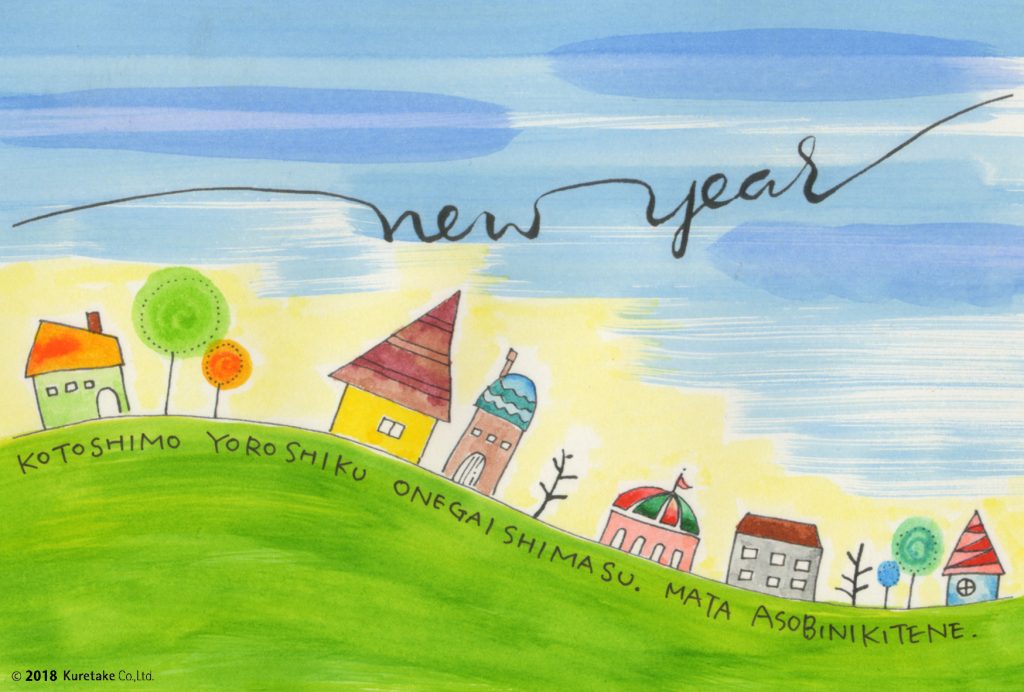 new year
KOTOSHIMO YOROSHIKU ONEGAISHIMASU. MATA ASOBINIKITENE.
© 2018 Kuretake Co.,Ltd.